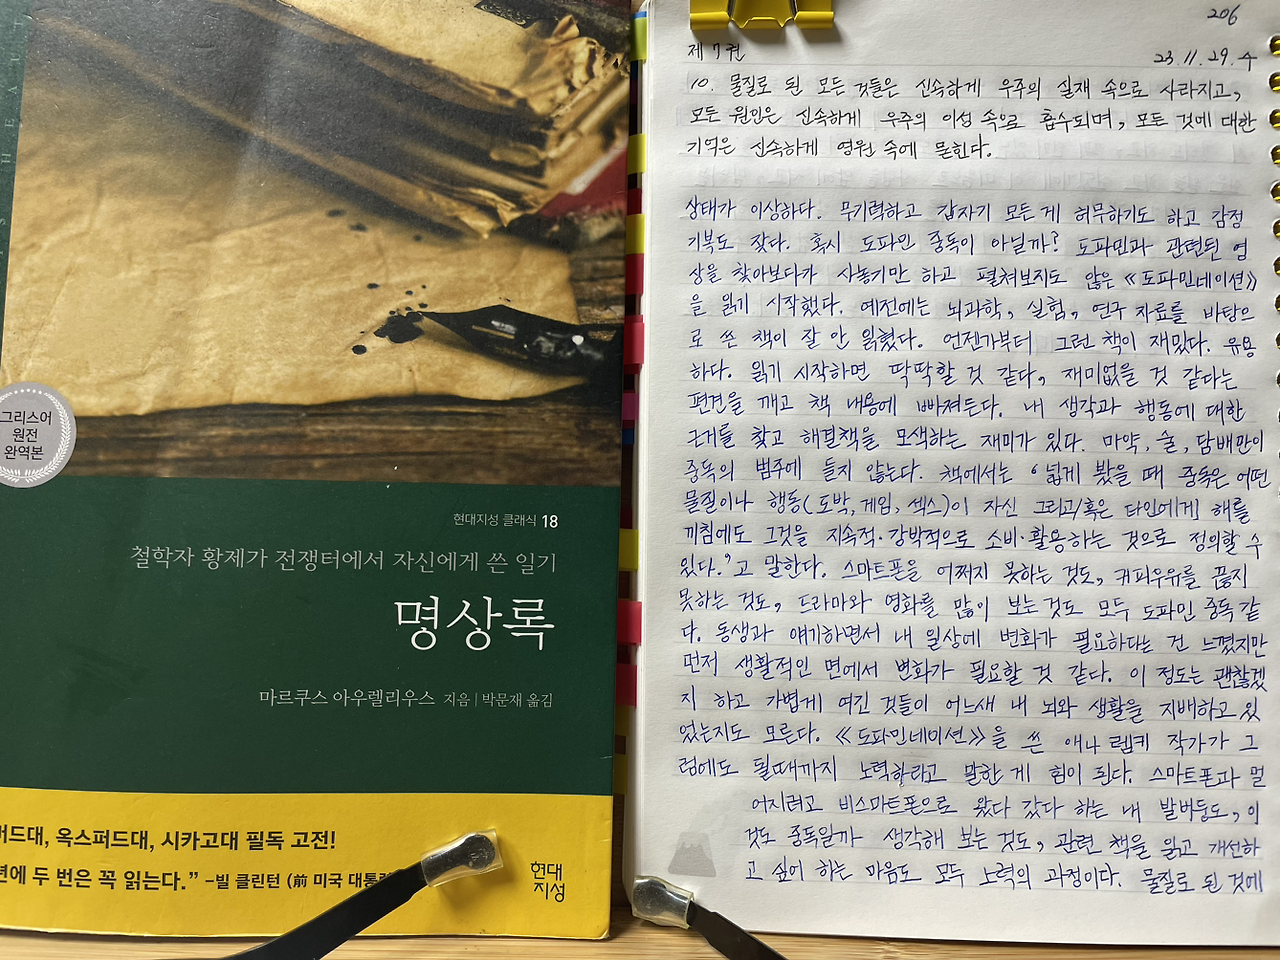 그리스어
원전
완역본
현대지성 클래식 18
철학자 황제가 전쟁터에서 자신에게 쓴 일기
명상록
마르쿠스 아우렐리우스 지음 | 박문재 옮김
버드대, 옥스퍼드대, 시카고대 필독 고전!
번에 두 번은 꼭 읽는다.” –빌 클린턴 (前 미국 대통령
현대
지성
206
제 7권
23. 11. 29. 수
10. 물질로 된 모든 것들은 신속하게 우주의 실재 속으로 사라지고,
모든 원인은 신속하게 우주의 이성 속으로 흡수되며, 모든 것에 대한
기억은 신속하게 영원 속에 묻힌다.
상태가 이상하다. 무기력하고 갑자기 모든게 허무하기도 하고 감정
기복도 잦다. 혹시 도파민 중독이 아닐까? 도파민과 관련된 영
상을 찾아보다가 사놓기만 하고 펼쳐보지도 않은 《도파민네이션》
을 읽기 시작했다. 예전에는 뇌과학, 실험, 연구 자료를 바탕으
로 쓴 책이 잘 안 읽혔다. 언젠가부터 그런 책이 재밌다. 유용
하다. 읽기 시작하면 딱딱할 것 같다, 재미없을 것 같다는
편견을 깨고 책 내용에 빠져든다. 내 생각과 행동에 대한
근거를 찾고 해결책을 모색하는 재미가 있다. 마약, 술, 담배만이
중독의 범주에 들지 않는다. 책에서는 ‘넓게 봤을 때 중독은 어떤
물질이나 행동(도박, 게임, 섹스)이 자신 그리고/혹은 타인에게 해를
끼침에도 그것을 지속적·강박적으로 소비·활용하는 것으로 정의할 수
있다.’고 말한다. 스마트폰을 어쩌지 못하는 것도, 커피우유를 끊지
못하는 것도, 드라마와 영화를 많이 보는것도 모두 도파민 중독 같
다. 동생과 얘기하면서 내 일상에 변화가 필요하다는 건 느꼈지만
먼저 생활적인 면에서 변화가 필요할 것 같다. 이 정도는 괜찮겠
지 하고 가볍게 여긴 것들이 어느새 내 뇌와 생활을 지배하고 있
었는지도 모른다. 《도파민네이션》을 쓴 애나 렘키 작가가 그
럼에도 될때까지 노력하라고 말한 게 힘이 된다. 스마트폰과 멀
어지려고 비스마트폰으로 왔다 갔다 하는 내 발버둥도, 이
것도 중독일까 생각해 보는 것도, 관련 책을 읽고 개선하
고 싶어 하는 마음도 모두 노력의 과정이다. 물질로 된 것에